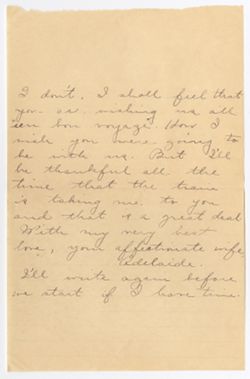 I don't, I shall feel that
you are wishing us all
"un bon voyage". How I
wish you were going to
be with us. But I'll
be thankful all the
time that the train
is taking me to you
and that is a great deal.
With my very best
love, your affectionate wife,
Adelaide.
I'll write again before
we start if I have time.